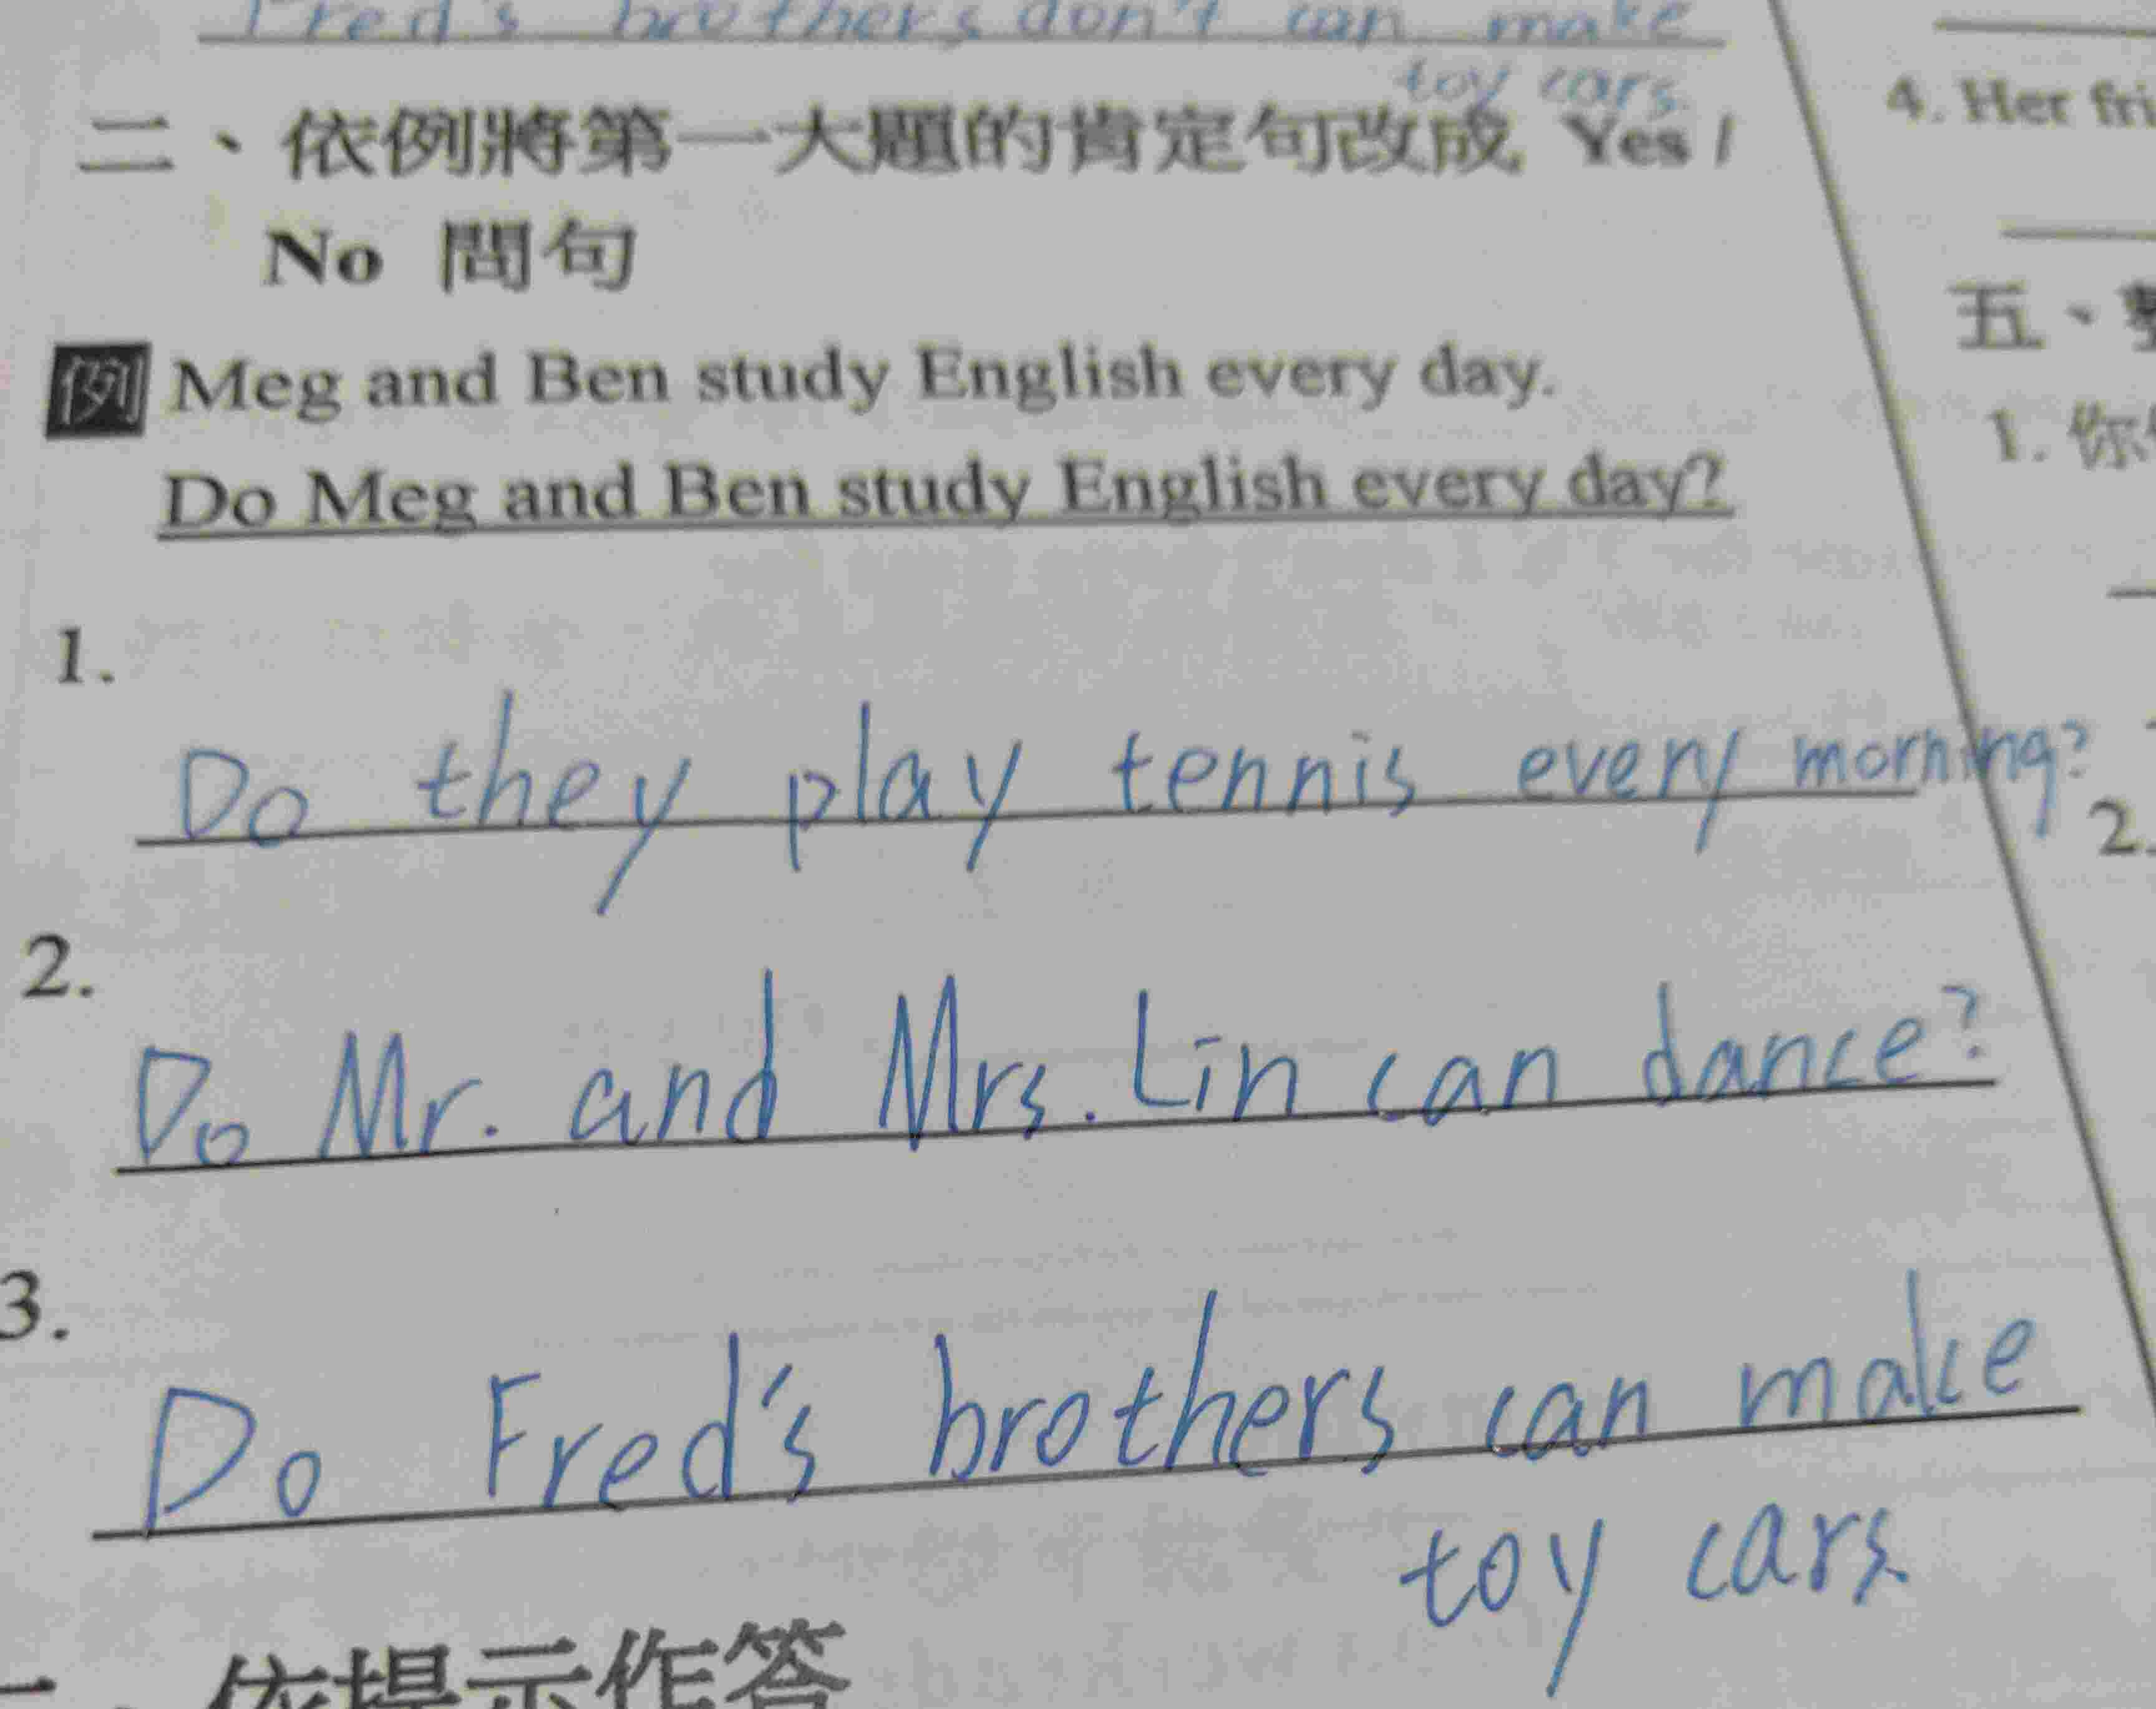 Fred's brothers don't can make
toy cars.
二、依例將第一大題的肯定句改成 Yes /
No 問句
例 Meg and Ben study English every day.
Do Meg and Ben study English every day?
1.
Do they play tennis every morning?
2.
Do Mr. and Mrs. Lin can dance?
3.
Do Fred's brothers can make
toy cars.
、依提示作答
4. Her
五、
1. 你
2.